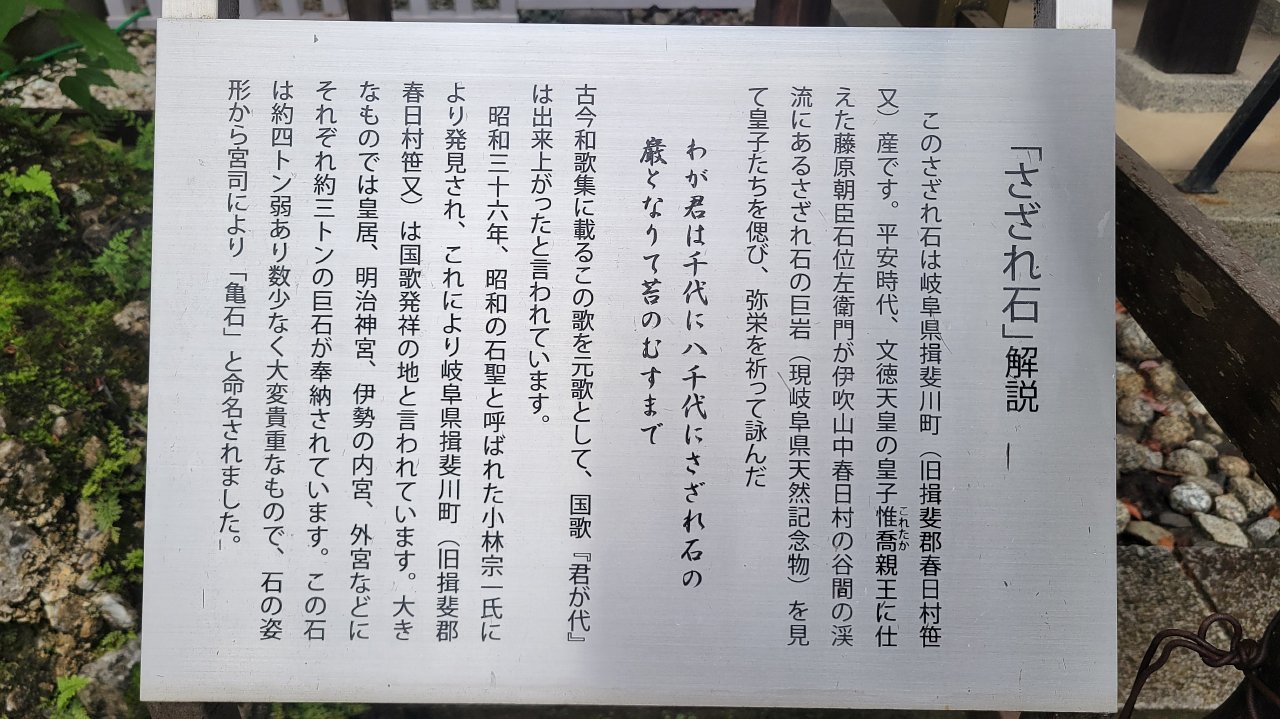 「さざれ石」解説
このさざれ石は岐阜県揖斐川町（旧揖斐郡春日村笹
又）産です。平安時代、文徳天皇の皇子惟喬親王に仕
これたか
えた藤原朝臣石位左衛門が伊吹山中春日村の谷間の渓
流にあるさざれ石の巨岩（現岐阜県天然記念物）を見
て皇子たちを偲び、弥栄を祈って詠んだ
わが君は千代に八千代にさざれ石の
巌となりて苔のむすまで
古今和歌集に載るこの歌を元歌として、国歌『君が代』
は出来上がったと言われています。
昭和三十六年、昭和の石聖と呼ばれた小林宗一氏に
より発見され、これにより岐阜県揖斐川町（旧揖斐郡
春日村笹又）は国歌発祥の地と言われています。大き
なものでは皇居、明治神宮、伊勢の内宮、外宮などに
それぞれ約三トンの巨石が奉納されています。この石
は約四トン弱あり数少なく大変貴重なもので、石の姿
形から宮司により「亀石」と命名されました。